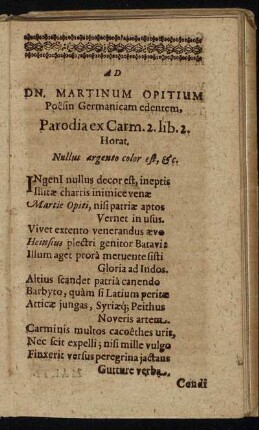 AD
DN. MARTINUM OPITIUM
Poësin Germanicam edentem,
Parodia ex Carm. 2. lib. 2.
Horat.
Nullus argento color est, &c.
INgenI nullus decor est, ineptis
Illitæ chartis inimice venæ
Martie Opiti, nisi patriæ aptos
Vernet in usus.
Vivet extento venerandus ævo
Heinsius plectri genitor Batavi:
Illum aget prorâ metuente sisti
Gloria ad Indos.
Altius scandet patriâ canendo
Barbyto, quàm si Latium peritæ
Atticæ jungas, Syriæq; Peithus
Noveris artem.
Carminis multos cacoëthes urit,
Nec scit expelli; nisi mille vulgo
Finxerit versus peregrina jactans
Gutture verba.
Condi